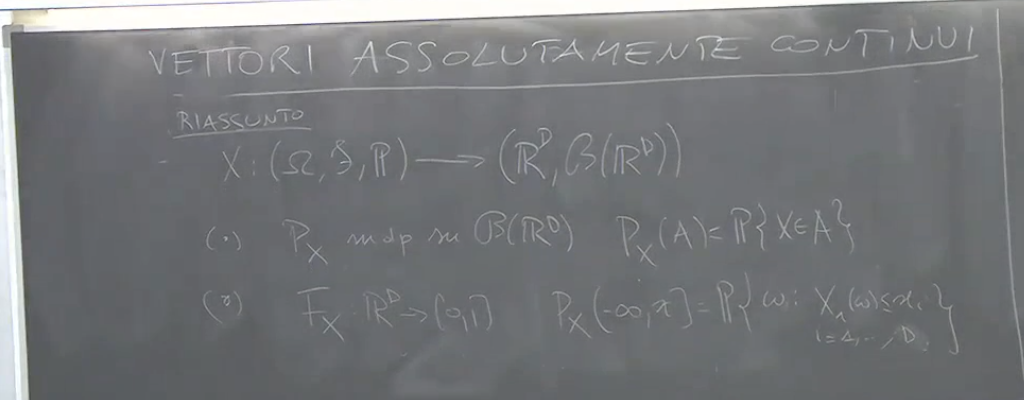 VETTORI ASSOLUTAMENTE CONTINUI
RIASSUNTO
X: (Ω, F, ℙ) → (ℝᴰ, B(ℝᴰ))
(•) P_X mdp su B(ℝᴰ) P_X(A) = ℙ{X∈A}
F_X: ℝᴰ → [0,1] P_X(-∞, x] = ℙ{ω: X_i(ω) ≤ x_i
i=1,..,D}